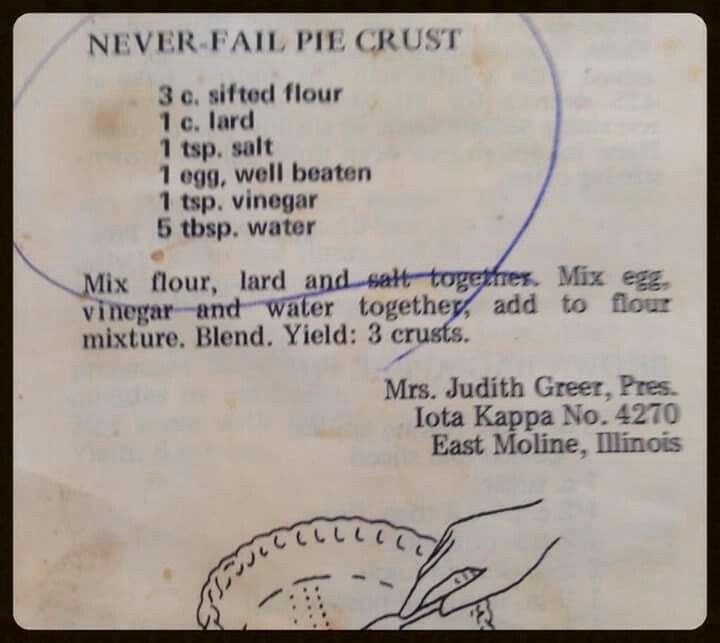 NEVER-FAIL PIE CRUST
3 c. sifted flour
1 c. lard
1 tsp. salt
1 egg, well beaten
1 tsp. vinegar
5 tbsp. water
Mix flour, lard and salt together. Mix egg,
vinegar and water together, add to flour
mixture. Blend. Yield: 3 crusts.
Mrs. Judith Greer, Pres.
Iota Kappa No. 4270
East Moline, Illinois